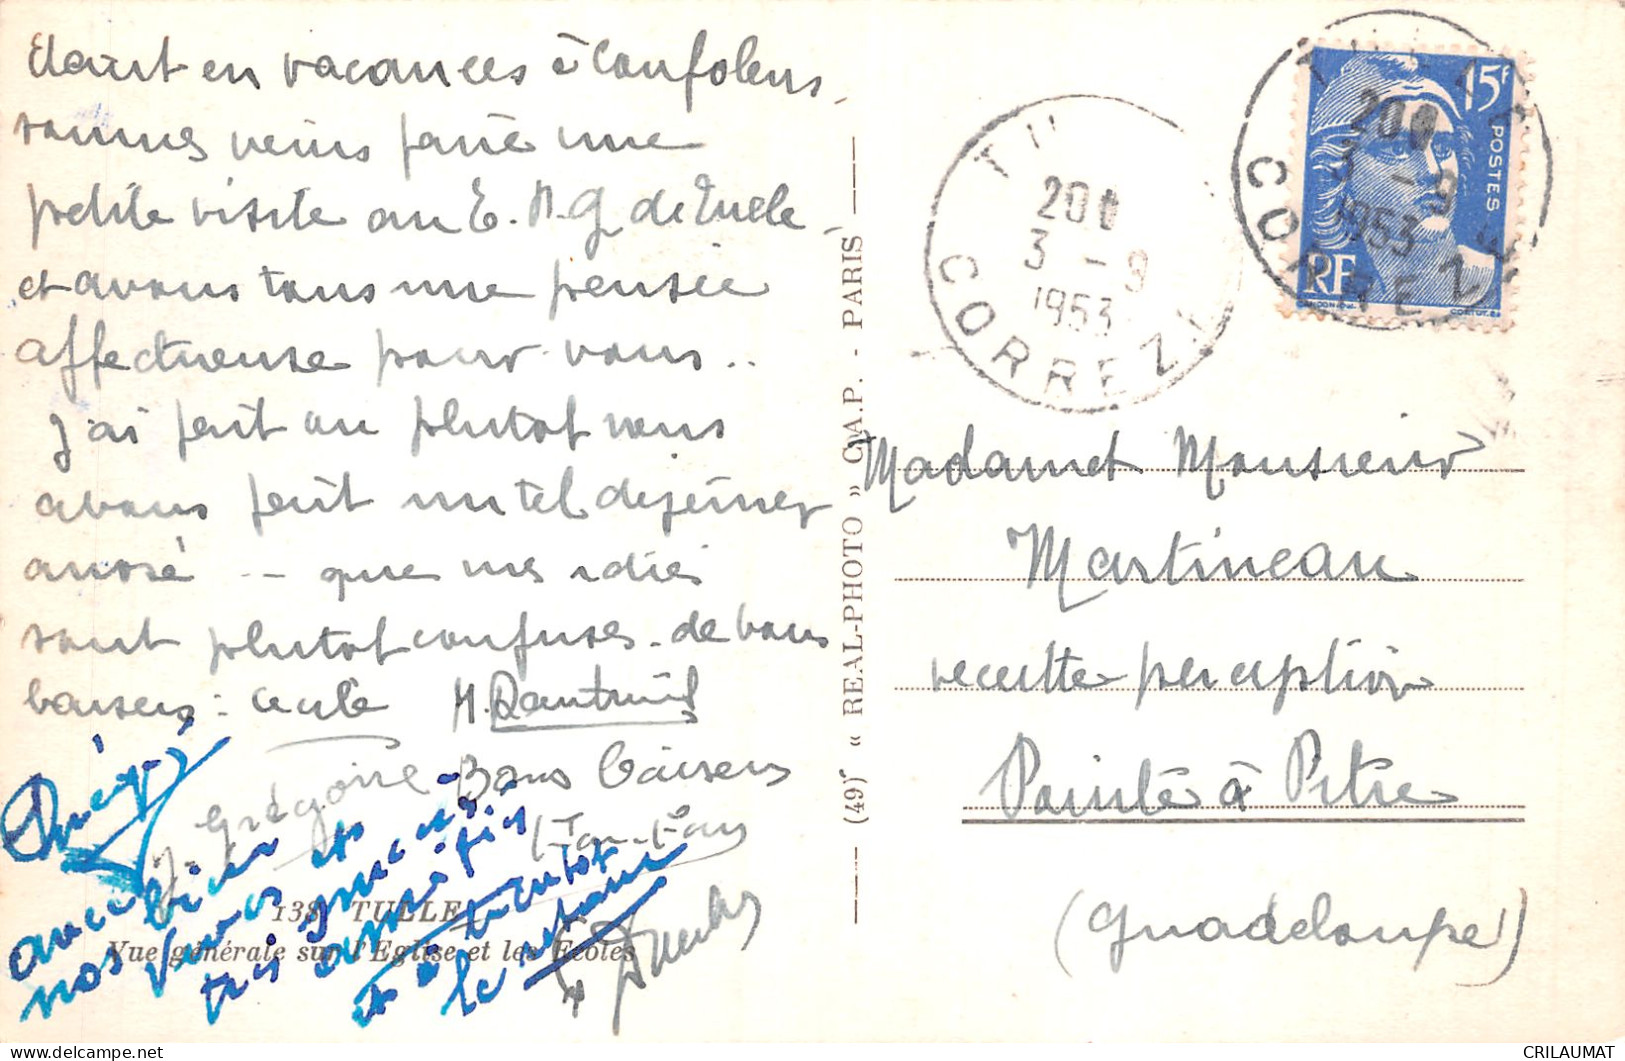 étant en vacances à Confolens,
sommes venus faire une
petite visite au E.N.G de Tulle,
et avons tous une pensée
affectueuse pour vous..
J'ai fait ou plutot nous
avons fait un tel dejeuner
arrosé -- que mes idées
sont plutot confuses. de bons
baisers: Cécile
Grégoire Bons baisers
avec bien
nos
vives et
très
amitiés
et à bientot
le retour
138 TULLE
Vue générale sur l'Eglise et les Ecoles
(49) « REAL-PHOTO » C.A.P. - PARIS
TU
20
3 - 9
1953
CORREZE
TULLE
20
3 - 9
1953
CORREZE
15F
POSTES
RF
GANDON
CORTOT
Madame et Monsieur
Martineau
recette perception
Pointe à Pitre
(Guadeloupe)
CRILAUMAT